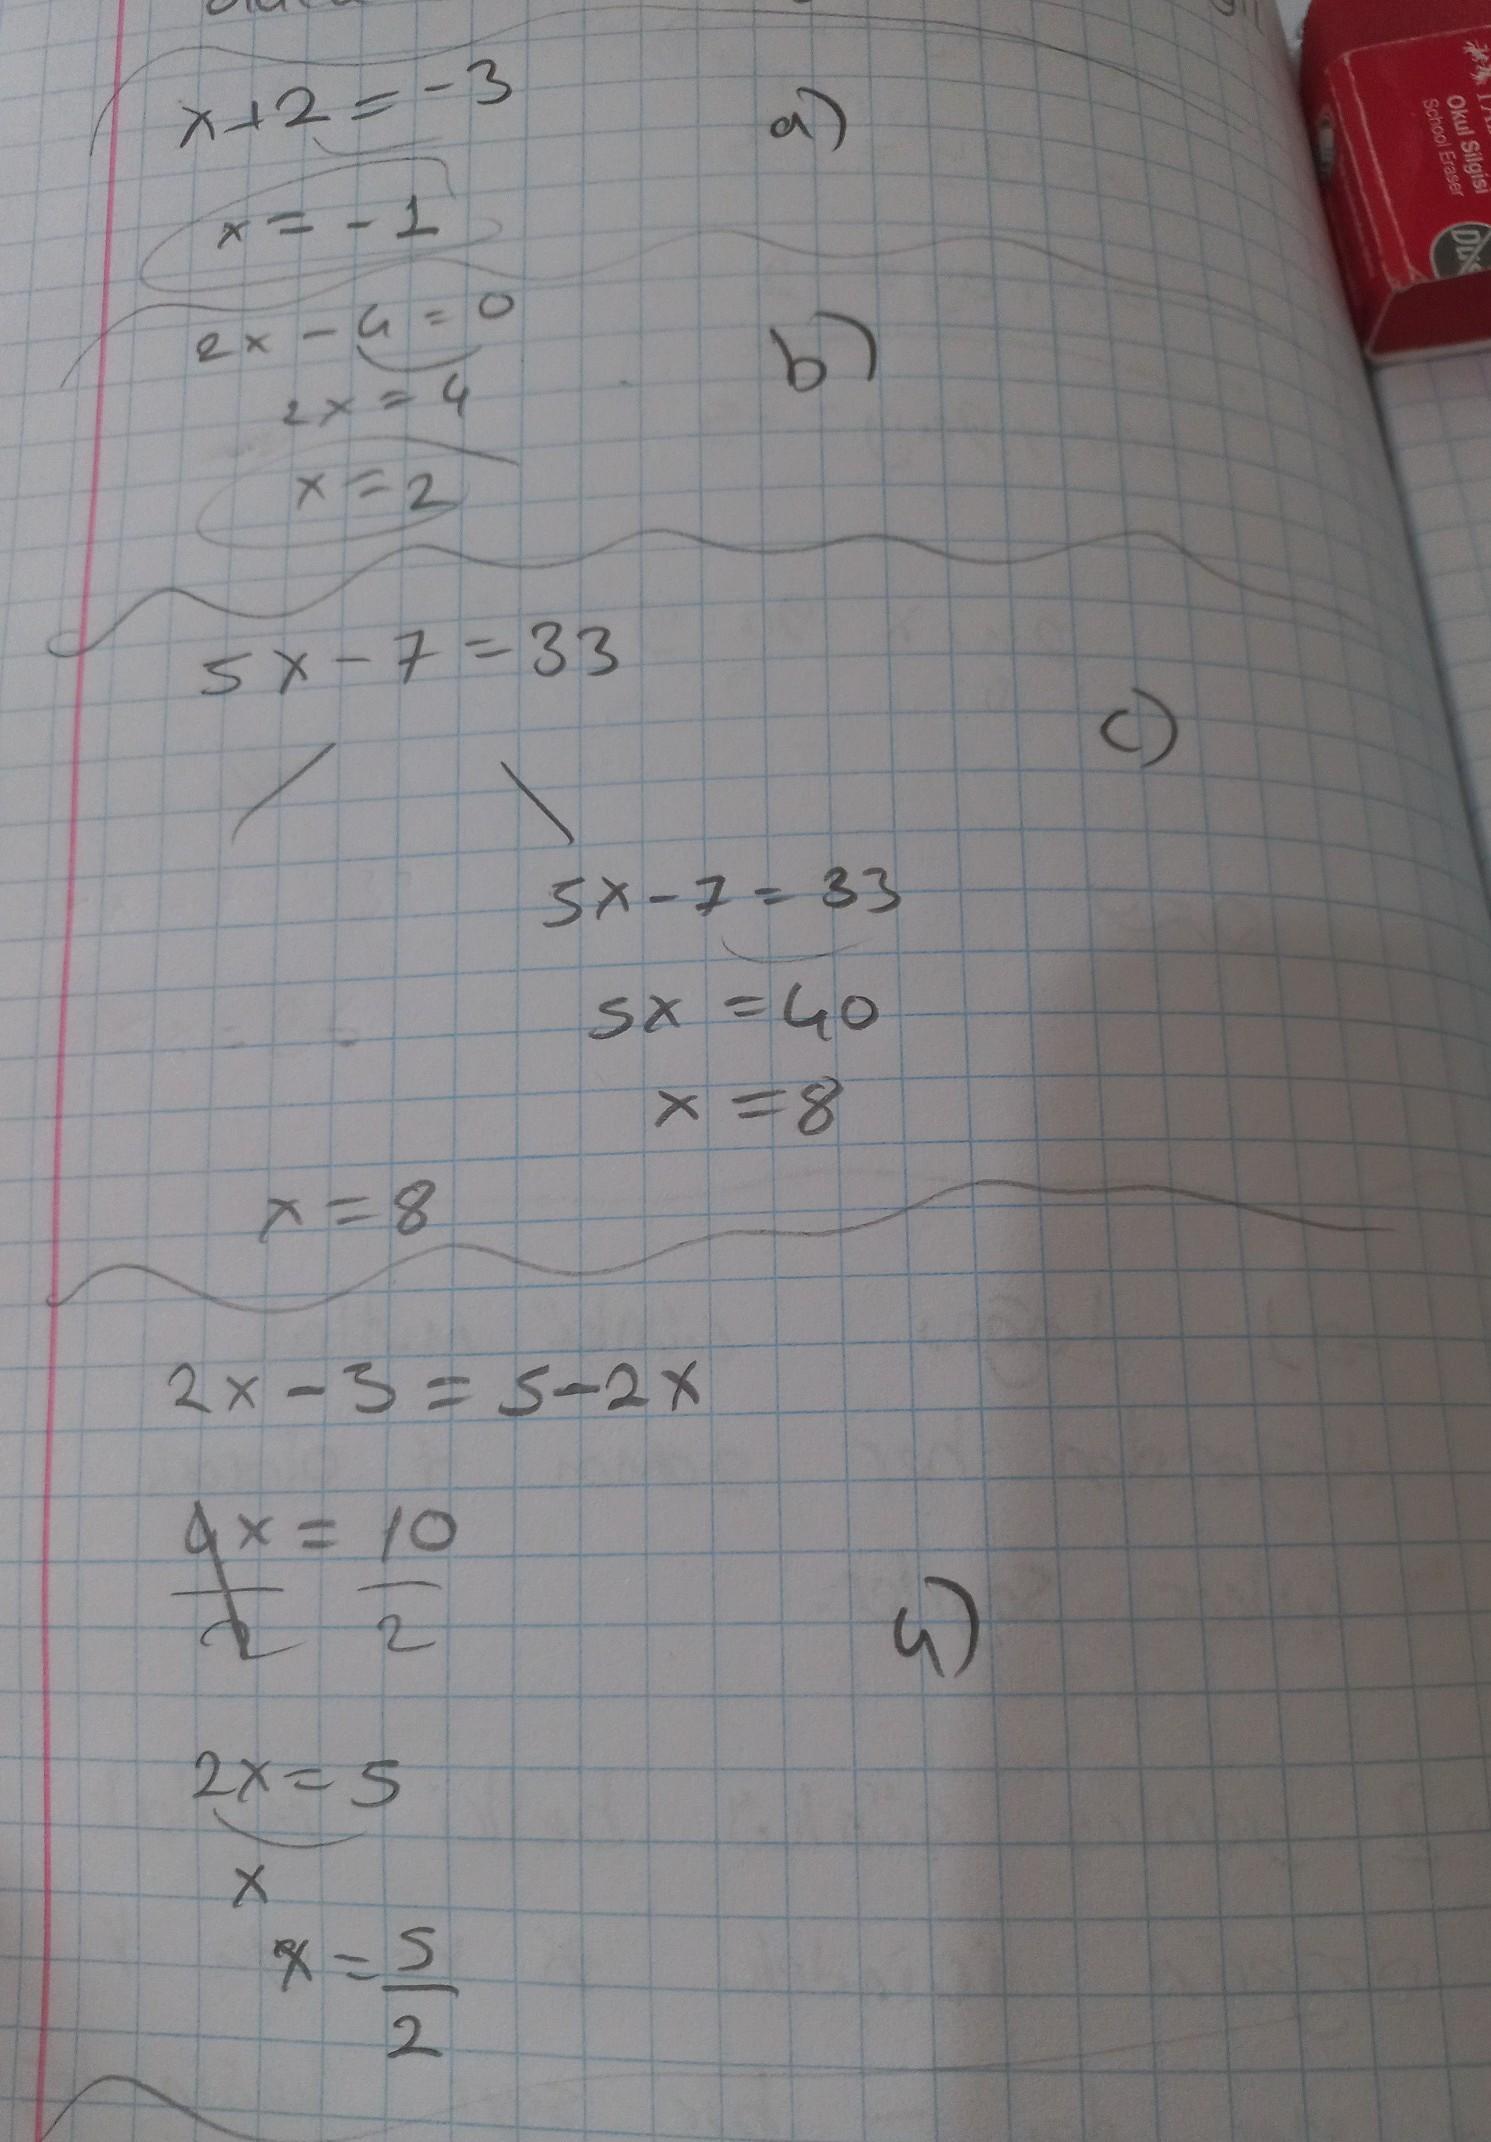 x+2=-3 a)
x=-1
2x-4=0 b)
2x=4
x=2
5x-7=33
c)
5x-7=33
5x=40
x=8
x=8
2x-3=5-2x
4x/2=10/2
4)
2x=5
x
x=5/2
Okul Silgisi
School Eraser